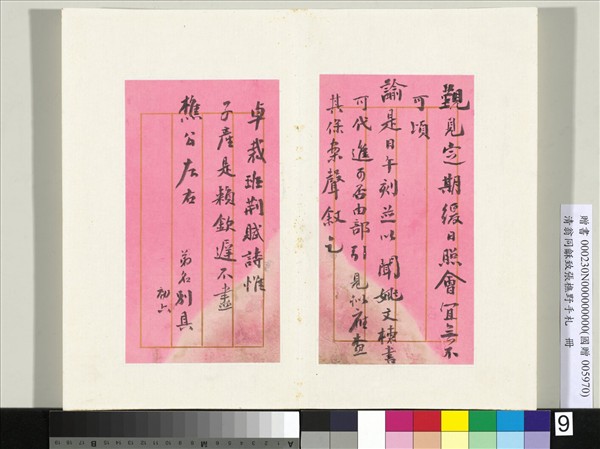 覲見定期緩日照會宜無不
可頃
諭是日午刻並以聞姚文棟書
可代進可否由部引見似應查
其保案聲敘之
卓裁班荊賦詩惟
子產是賴欽遲不盡
樵公左右
弟名別具
初六
贈書 000230N000000000(國贈 005970)
清翁同龢致張樵野手札 冊
9
A
M
B